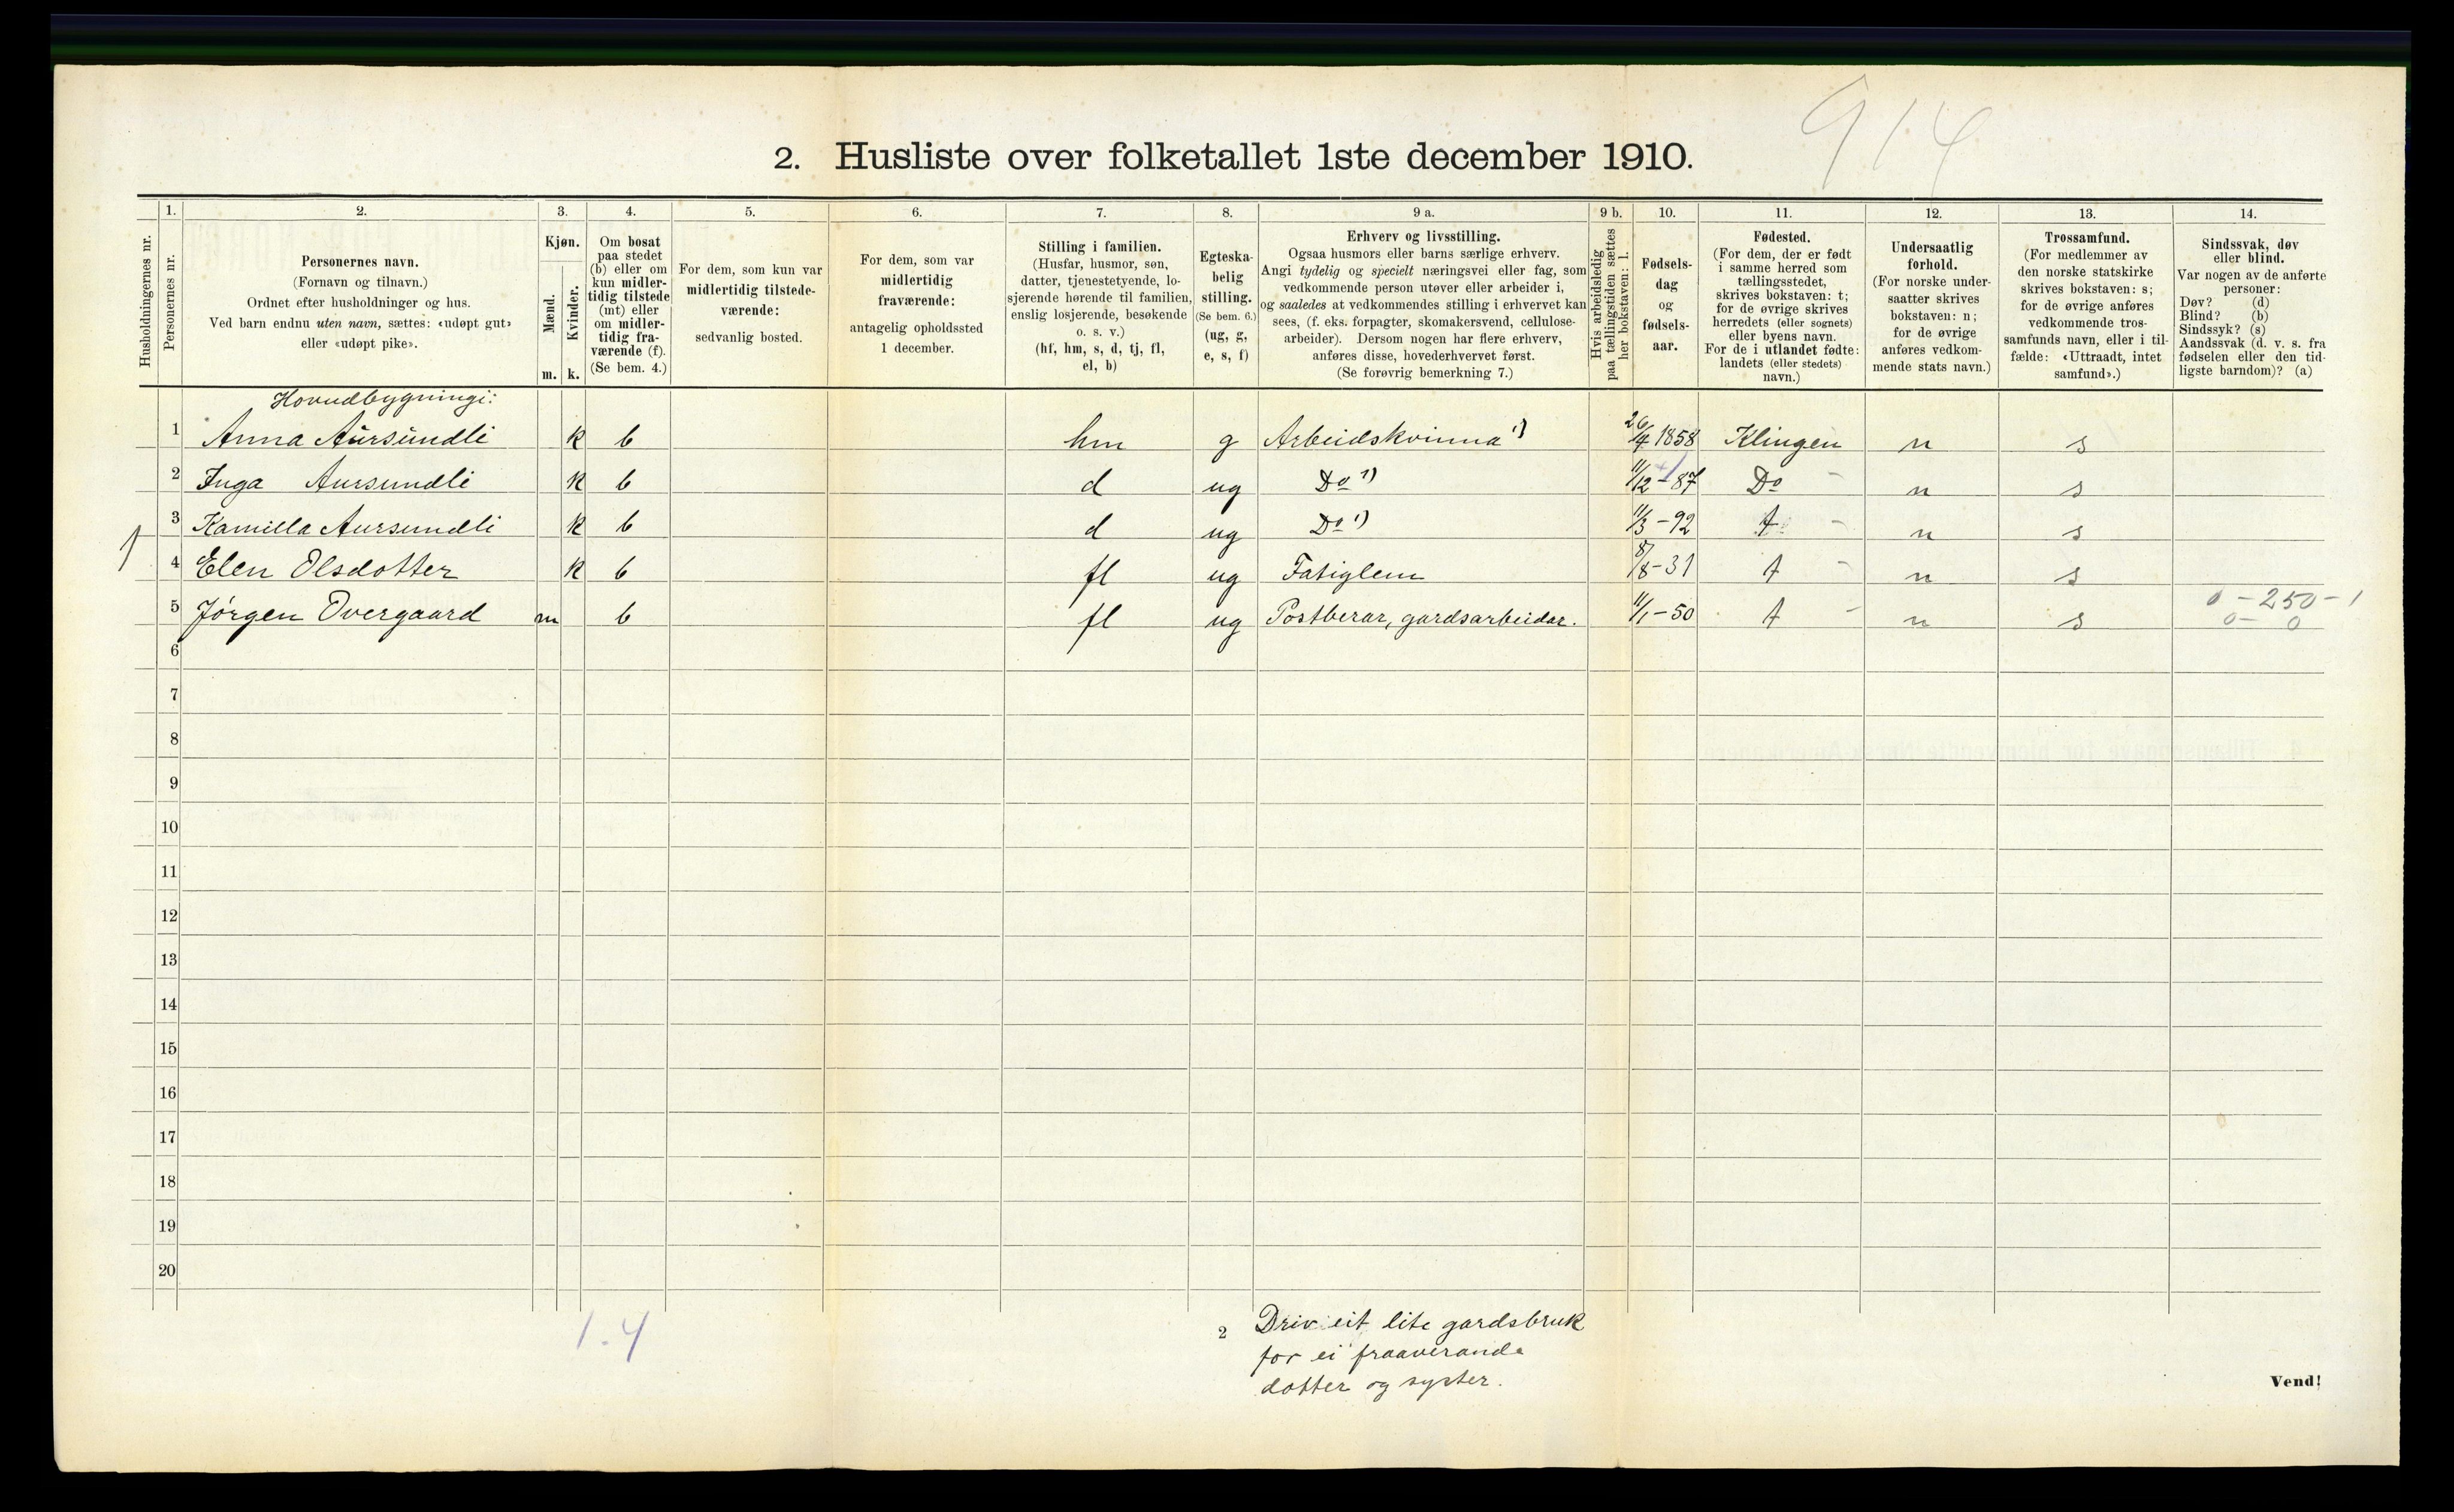 914
2. Husliste over folketallet 1ste december 1910.
Husholdningernes nr.
1.
Personernes nr.
2.
Personernes navn.
(Fornavn og tilnavn.)
Ordnet efter husholdninger og hus.
Ved barn endnu uten navn, sættes: «udøpt gut»
eller «udøpt pike».
3.
Kjøn.
Mænd.
Kvinder.
m. k.
4.
Om bosat
paa stedet
(b) eller om
kun midler-
tidig tilstede
(mt) eller
om midler-
tidig fra-
værende (f).
(Se bem. 4.)
5.
For dem, som kun var
midlertidig tilstede-
værende:
sedvanlig bosted.
6.
For dem, som var
midlertidig
fraværende:
antagelig opholdssted
1 december.
7.
Stilling i familien.
(Husfar, husmor, søn,
datter, tjenestetyende, lo-
sjerende hørende til familien,
enslig losjerende, besøkende
o. s. v.)
(hf, hm, s, d, tj, fl,
el, b)
8.
Egteska-
belig
stilling.
(Se bem. 6.)
(ug, g,
e, s, f)
9 a.
Erhverv og livsstilling.
Ogsaa husmors eller barns særlige erhverv.
Angi tydelig og specielt næringsvei eller fag, som
vedkommende person utøver eller arbeider i,
og saaledes at vedkommendes stilling i erhvervet kan
sees, (f. eks. forpagter, skomakersvend, cellulose-
arbeider). Dersom nogen har flere erhverv,
anføres disse, hovederhvervet først.
(Se forøvrig bemerkning 7.)
9 b.
Hvis arbeidsledig
paa tællingstiden sættes
her bokstaven: l.
10.
Fødsels-
dag
og
fødsels-
aar.
11.
Fødested.
(For dem, der er født
i samme herred som
tællingsstedet,
skrives bokstaven: t;
for de øvrige skrives
herredets (eller sognets)
eller byens navn.
For de i utlandet fødte:
landets (eller stedets)
navn.)
12.
Undersaatlig
forhold.
(For norske under-
saatter skrives
bokstaven: n;
for de øvrige
anføres vedkom-
mende stats navn.)
13.
Trossamfund.
(For medlemmer av
den norske statskirke
skrives bokstaven: s;
for de øvrige anføres
vedkommende tros-
samfunds navn, eller i til-
fælde: «Uttraadt, intet
samfund».)
14.
Sindssvak, døv
eller blind.
Var nogen av de anførte
personer:
Døv? (d)
Blind? (b)
Sindssyk? (s)
Aandssvak (d. v. s. fra
fødselen eller den tid-
ligste barndom)? (a)
Hovudbygningi:
1 Anna Aursundli k b hm g Arbeidskvinna 1) 26/4 1858 Klingen n s
2 Inga Aursundli k b d ug Do 1) 11/12 - 87 Do - n s
3 Kamilla Aursundli k b d ug Do 1) 11/3 - 92 t - n s
1
4 Elen Olsdotter k b fl ug Fatiglem 8/8 - 31 t - n s
0 - 250 - 1
5 Jørgen Overgaard m b fl ug Postberar, gardsarbeidar. 11/1 - 50 t - n s 0 - 0
6
7
8
9
10
11
12
13
14
15
16
17
18
19
20
1.4
2
Driv eit lite gardsbruk
for ei fraaverande
dotter og syster.
Vend!